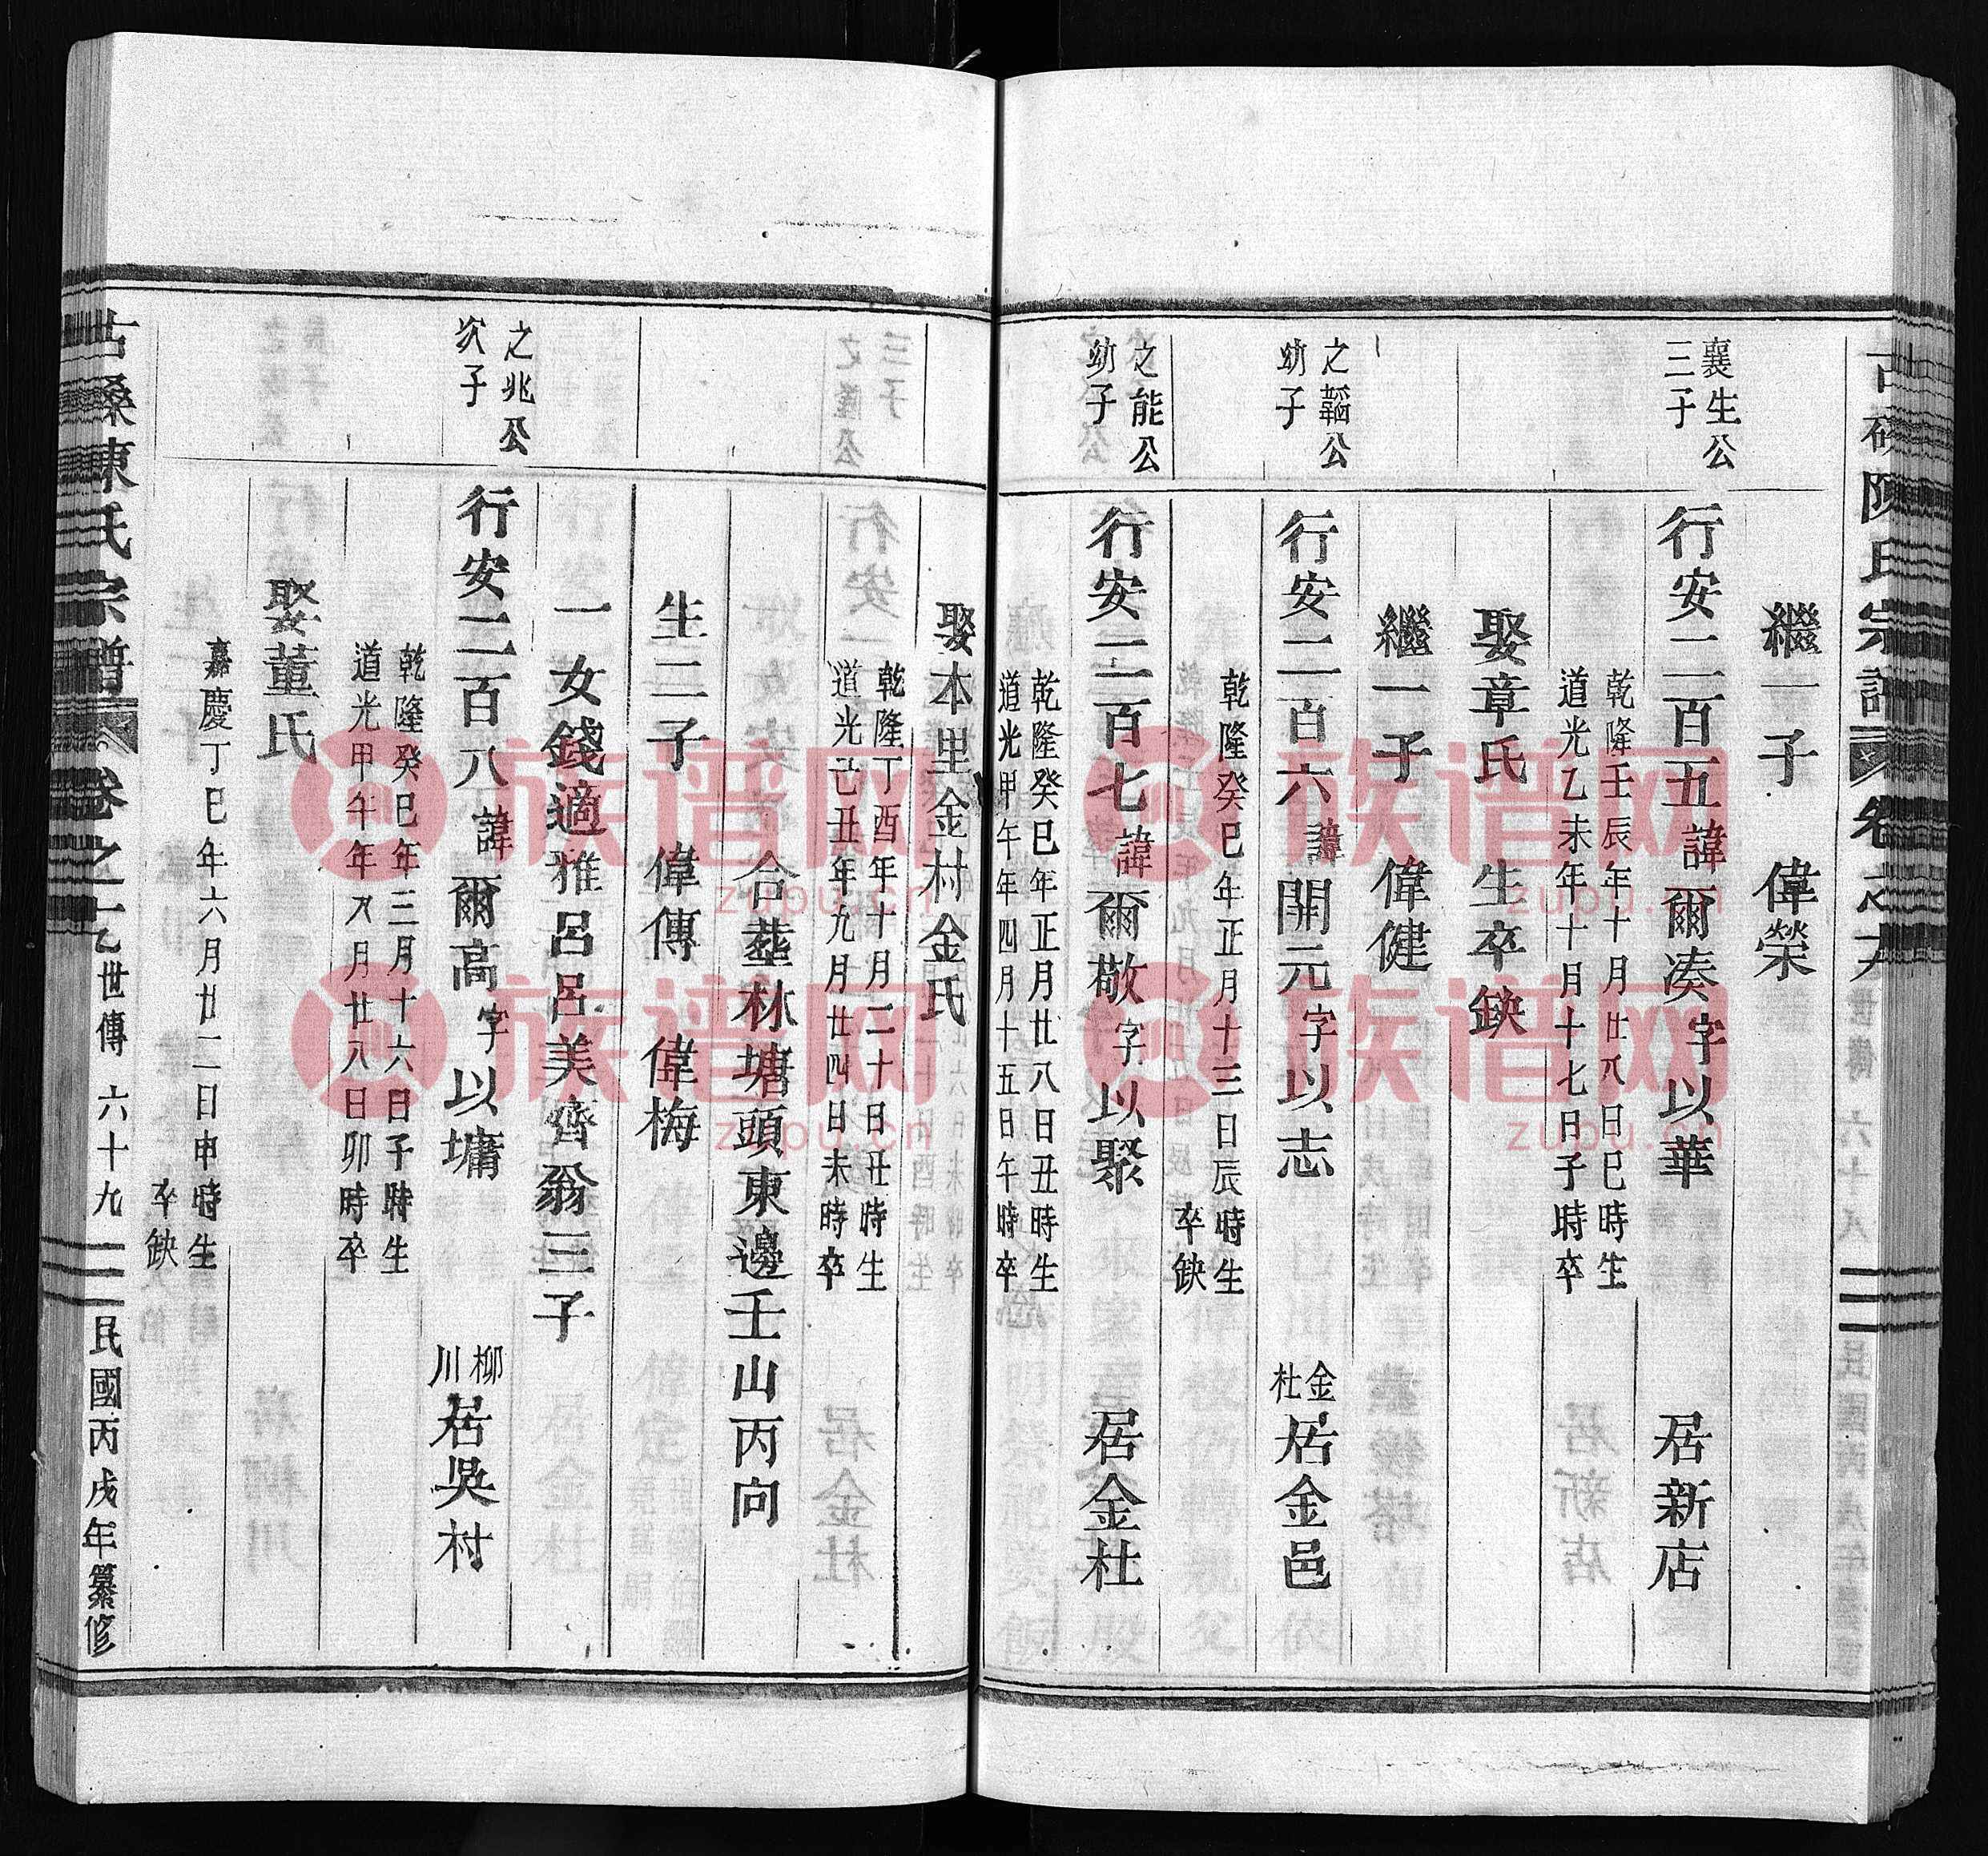 繼一子　偉榮
襄生公
三子
行安二百五諱爾湊字以華　居新店
乾隆壬辰年十月廿八日巳時生
道光乙未年十月十七日子時卒
娶章氏　生卒缺
繼一子　偉健
之韜公
幼子
行安二百六諱開元字以志　金杜居金邑
乾隆癸巳年正月十三日辰時生
卒缺
之能公
幼子
行安二百七諱爾敬字以聚　居金杜
乾隆癸巳年正月廿八日丑時生
道光甲午年四月十五日午時卒
娶本里金村金氏
乾隆丁酉年十月二十日丑時生
道光己丑年九月廿四日未時卒
合塟林塘頭東邊壬山丙向
生二子　偉傳　偉梅
一女錢適雅呂呂美齊翁三子
之兆公
次子
行安二百八諱爾高字以墉　柳川居吳村
乾隆癸巳年三月十六日子時生
道光甲午年八月廿八日卯時卒
娶董氏
嘉慶丁巳年六月廿二日申時生
卒缺
陳氏宗譜　卷之　世傳　六十九　民國丙戌年纂修
族谱网
zupu.cn
族谱网
zupu.cn
族谱网
zupu.cn
族谱网
zupu.cn